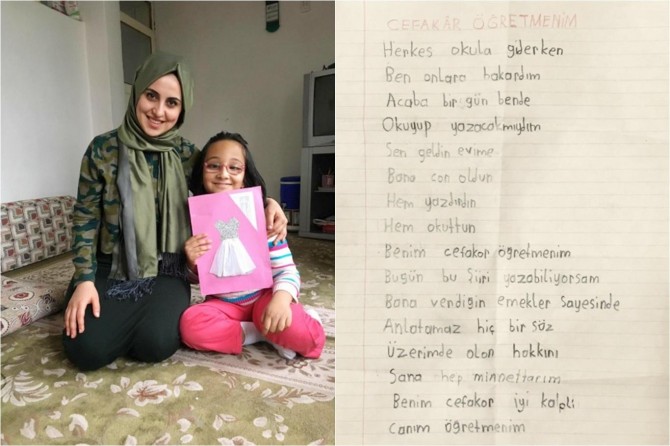 CEFAKÂR ÖĞRETMENİM
Herkes okula giderken
Ben onlara bakardım
Acaba bir gün bende
Okuyup yazacakmıydım
Sen geldin evime
Bana can oldun
Hem yazdırdın
Hem okuttun
Benim cefakar öğretmenim
Bugün bu şiiri yazabiliyorsam
Bana verdiğin emekler sayesinde
Anlatamaz hiç bir söz
Üzerimde olan hakkını
Sana hep minnettarım
Benim cefakar iyi kalpli
Canım öğretmenim